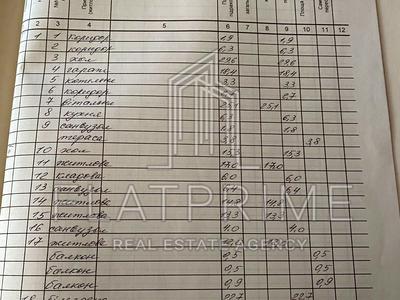 1 2 3 4 5 6 7 8 9 10 11 12
1 1 коридор 1,9 1,9
2 коридор 6,3 6,3
3 хол 29,6 29,6
4 гараж 18,4 18,4
5 котельня 3,3 3,3
6 коридор 2,7
7 вітальня 25,1 25,1
8 кухня 6,3 6,3
9 санвузол 1,8 1,8
тераса 3,8 3,8
10 хол 15,3 15,3
11 житлова 17,0 17,0
12 кладова 6,0 6,0
13 санвузол 6,4 6,4
14 житлова 14,8 14,8
15 житлова 13,3 13,3
16 санвузол 4,0 4,0
17 житлова
балкон 0,5 0,5
балкон 0,5 0,5
балкон 0,9 0,9
18 22,7 22,7
ATPRIME
REAL ESTATE AGENCY